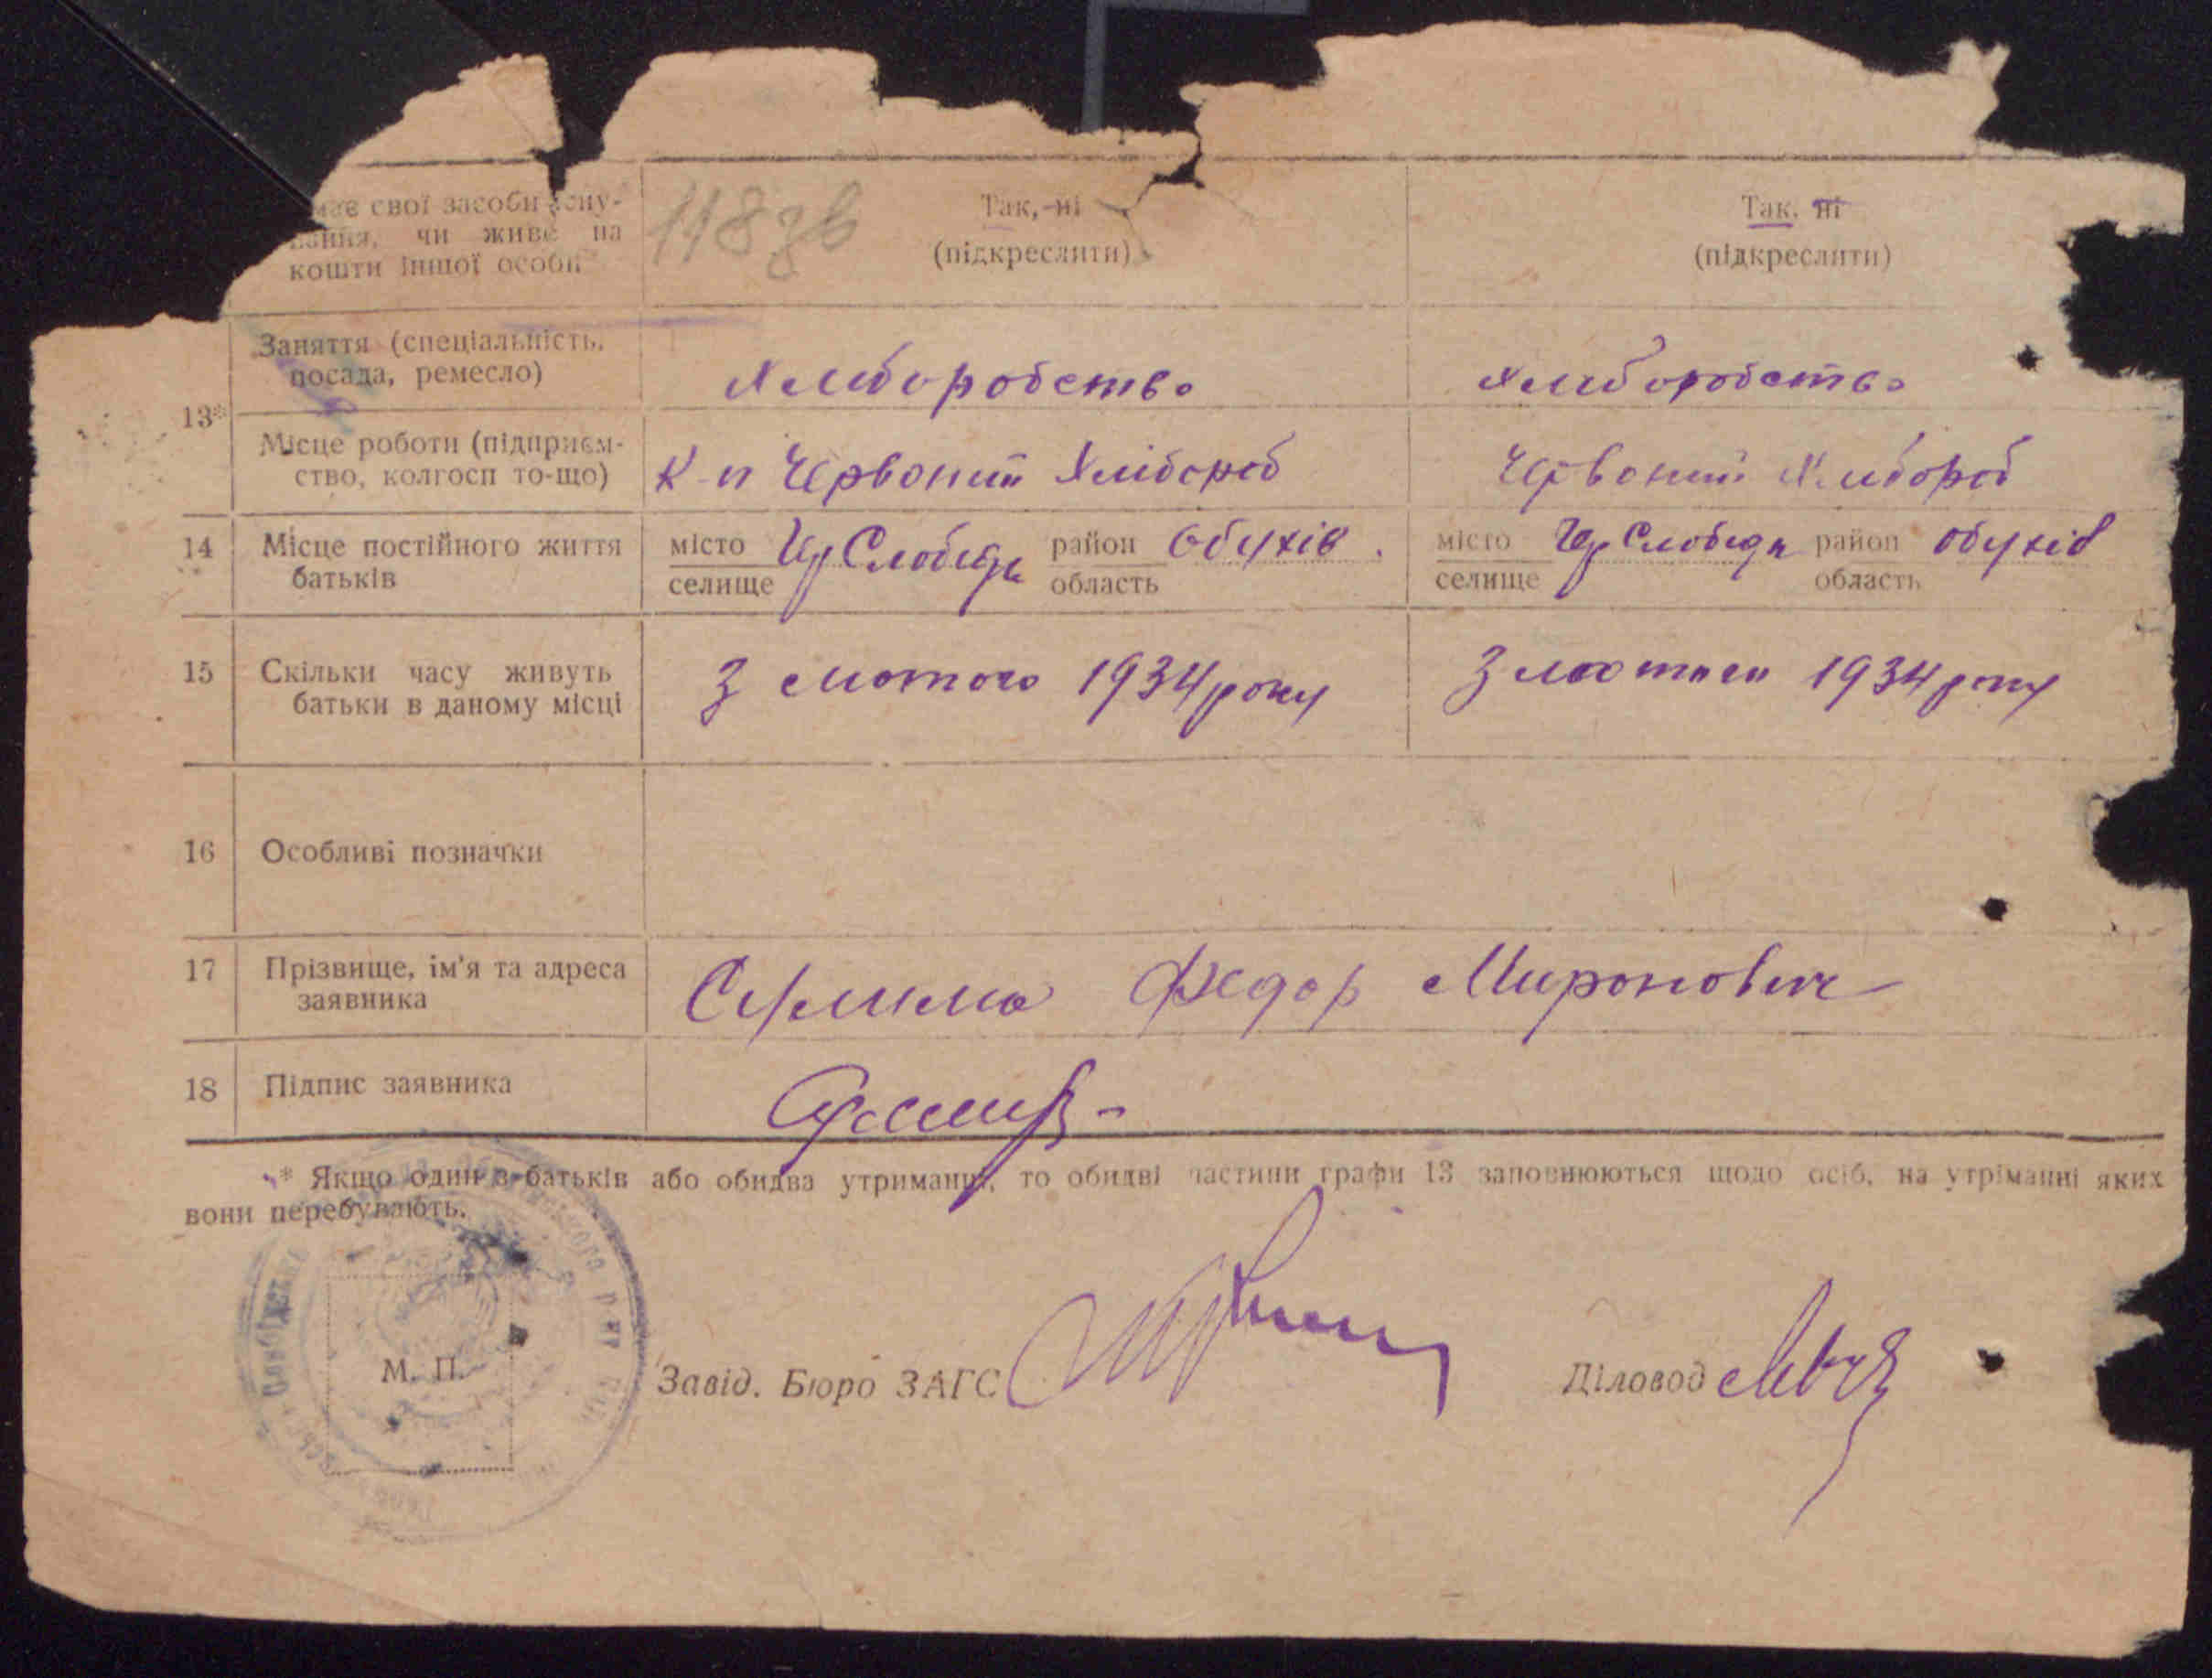 має свої засоби існу-
вання, чи живе на
кошти іншої особи
118 зв
Так, ні
(підкреслити)
Так, ні
(підкреслити)
13*
Заняття (спеціальність,
посада, ремесло)
Хліборобство
Хліборобство
Місце роботи (підприєм-
ство, колгосп то-що)
К-п Червоний Хлібороб
Червоний Хлібороб
14
Місце постійного життя
батьків
місто Чер Слобода район Обухів
селище область
місто Чер Слобода район Обухів
селище область
15
Скільки часу живуть
батьки в даному місці
З лютого 1934 року
З лютого 1934 року
16
Особливі позначки
17
Прізвище, ім'я та адреса
заявника
Федор Миронович
18
Підпис заявника
* Якщо один з батьків або обидва утриманці, то обидві частини графи 13 заповнюються щодо осіб, на утріманні яких
вони перебувають.
М. П.
Завід. Бюро ЗАГС
Діловод